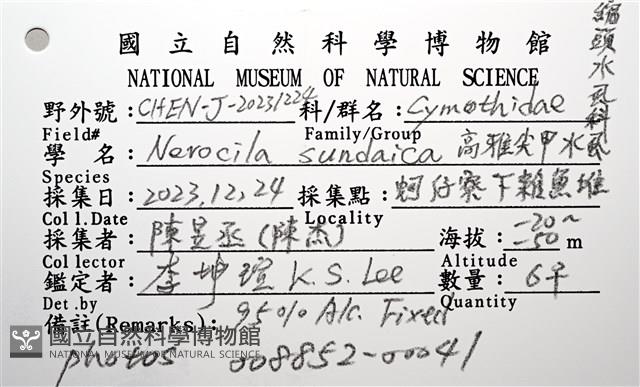 縮頭水虱科
國立自然科學博物館
NATIONAL MUSEUM OF NATURAL SCIENCE
野外號：CHEN-J-20231224 科/群名：Cymothidae
Field# Family/Group
學 名：Nerocila sundaica 高雅尖甲水虱
Species
採集日：2023,12,24 採集點：蚵仔寮下雜魚堆
Coll.Date Locality
採集者：陳昱丞(陳杰) 海拔：-20~-50 m
Collector Altitude
鑑定者：李坤瑄 K.S. Lee 數量：6平
Det.by Quantity
備註(Remarks)：95% Alc. Fixed
國立自然科學博物館
NATIONAL MUSEUM OF NATURAL SCIENCE
photos 008852-00041